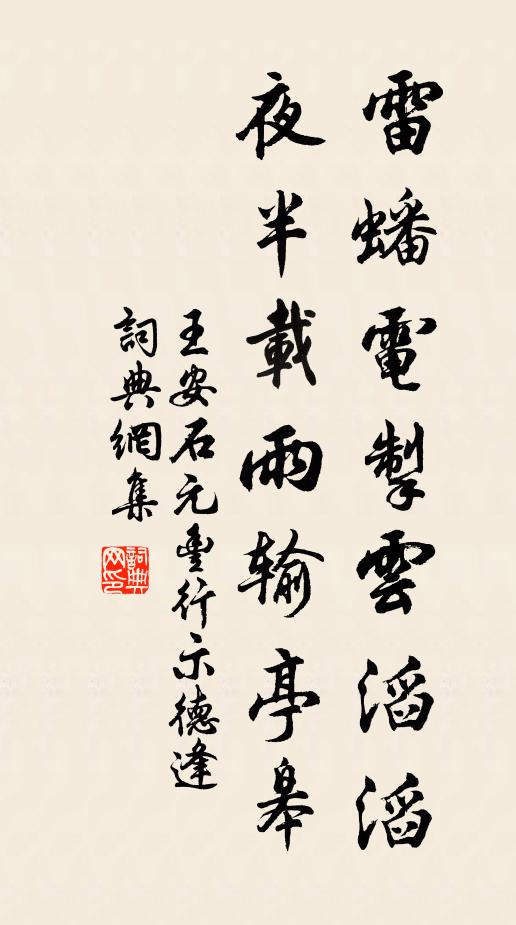 雷蟠電掣雲滔滔
夜半載雨輸亭皋
王安石元豐行示德逢
詞典網集
詞典
网印